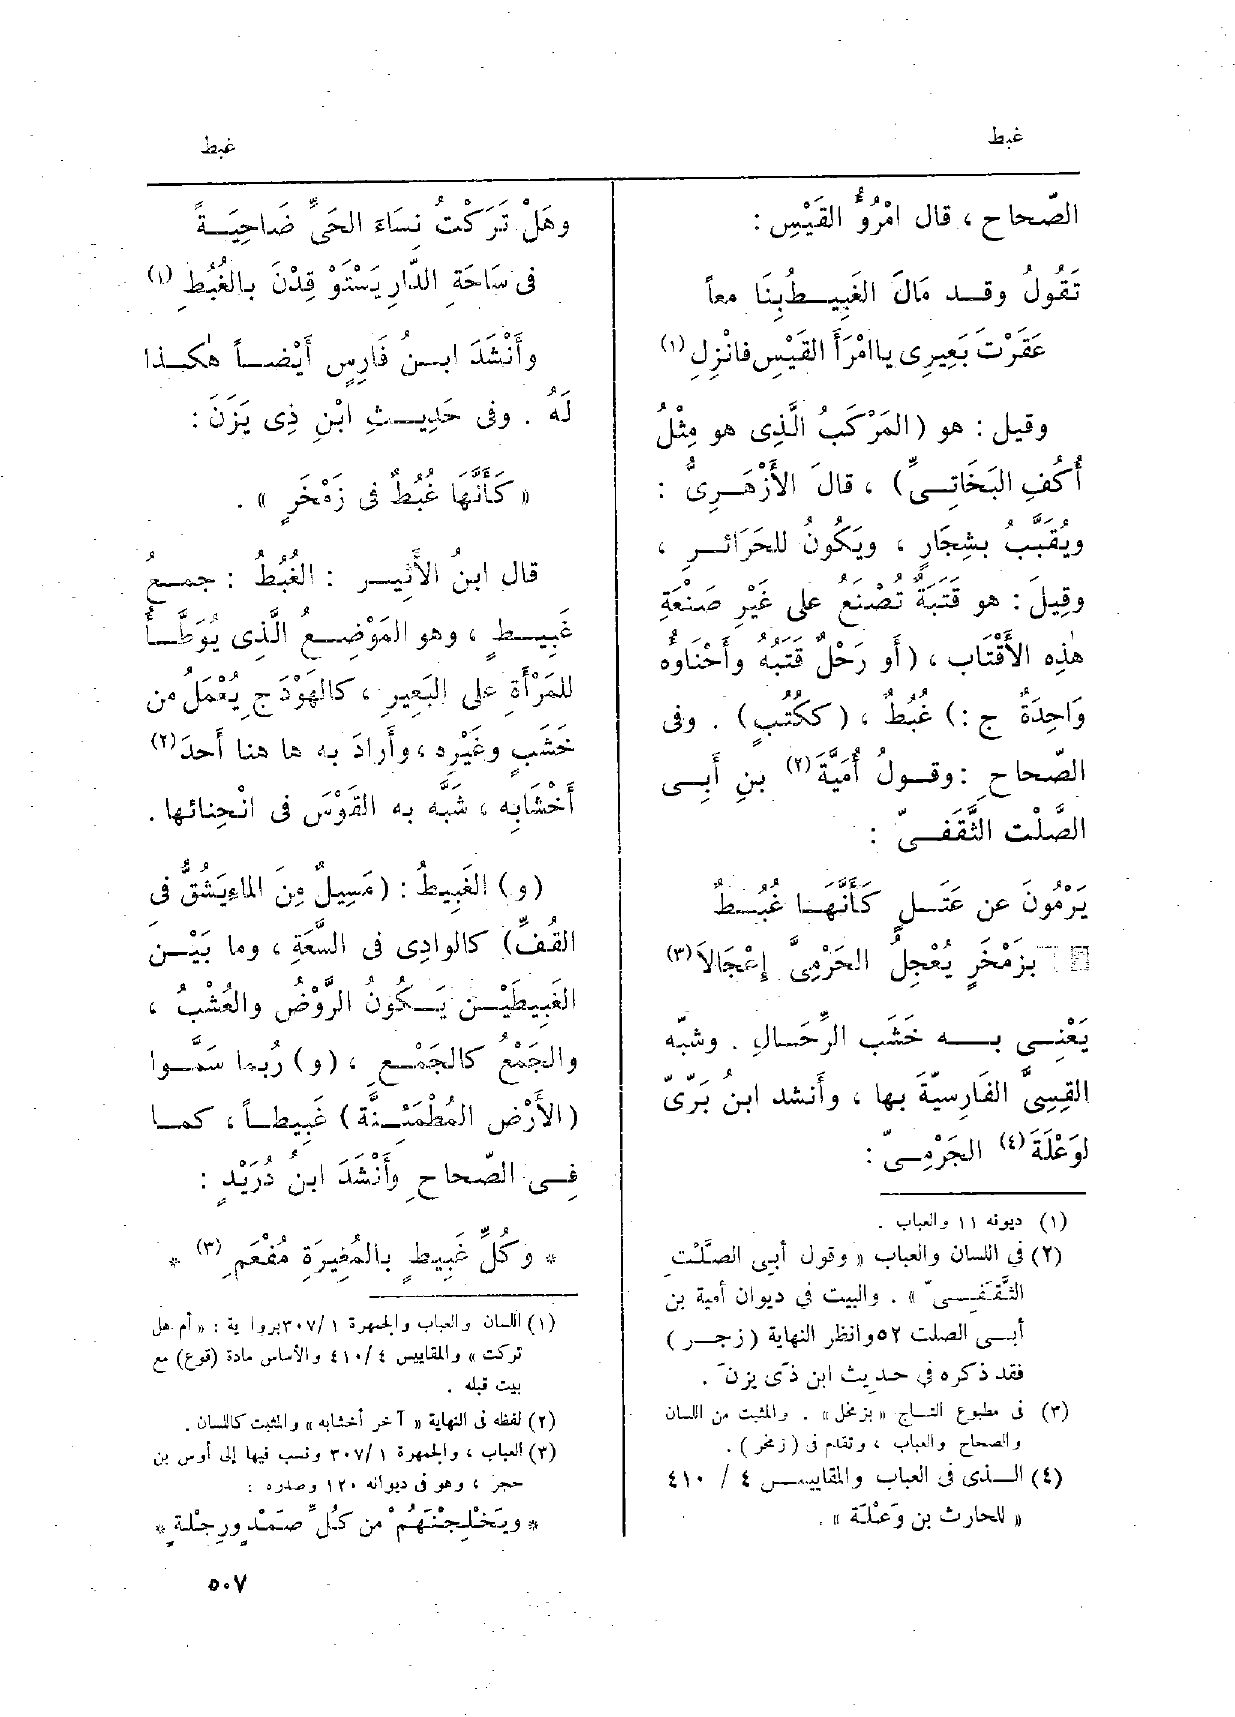 غبط
غبط
الصّحاح ، قال امْرُؤُ القَيْسِ :
تَقُولُ وقـد مَالَ الغَبِيـطُ بِنَا معاً
عَقَرْتَ بَعِيرِى ياامْرَأَ القَيْسِ فانْزِلِ (١)
وقيل : هو (المَرْكَبُ الَّذِى هو مِثْلُ
أُكُفِ البَخَاتِـىِّ) ، قالَ الأَزْهَـرِىُّ :
ويُقَبَّبُ بشِجَارٍ ، ويَكُونُ للحَرَائـرِ ،
وقِيلَ : هو قَتَبَةٌ تُصْنَعُ على غَيْرِ صَنْعَةِ
هٰذِه الأَقْتَاب ، (أَو رَحْلٌ قَتَبُه وأَحْنَاؤُه
وَاحِدَةٌ ج :) غُبُطٌ ، (ككُتُبٍ) . وفى
الصّحاحِ : وقـولُ أُمَيَّةَ (٢) بنِ أَبِـى
الصَّلْت الثَّقَفـىّ :
يَرْمُونَ عن عَتَـلٍ كَأَنَّهَـا غُبُـطٌ
بزَمْخَرٍ يُعْجِلُ الحَرْمِىَّ إِعْجَالاَ (٣)
يَعْنِـى بـه خَشَب الرِّحَـالِ . وشبّه
القِسِىَّ الفَارسيّةَ بها ، وأَنشد ابنُ بَرِّىّ
لوَعْلَةَ (٤) الجَرْمِـىّ :
(١) ديوانه ١١ والعباب .
(٢) في اللسان والعباب « وقول أبـي الصـَّلْـتِ
الثَّقَفـيّ » . والبيت في ديوان أمية بن
أبـي الصلت ٥٢ وانظر النهاية (زمخـر)
فقد ذكره في حديث ابن ذي يزن .
(٣) فى مطبوع التـاج « بزمخل » . والمثبت من اللسان
والصحاح والعباب ، وتقدم فى (زمخر) .
(٤) الـذى فى العباب والمقاييـس ٤ / ٤١٠
« للحارث بن وَعْلَة » .
وهَلْ تَرَكْتُ نِسَاءَ الحَىِّ ضَاحِيَـةً
فى سَاحَةِ الدَّارِ يَسْتَوْقِدْنَ بالغُبُطِ (١)
وأَنْشَدَ ابـنُ فَارِسٍ أَيْضـاً هٰكـذا
لَهُ . وفى حَدِيـثِ ابْنِ ذِى يَزَنَ :
« كَأَنَّهَا غُبُطٌ فى زَمْخَرٍ » .
قال ابنُ الأَثِيـر : الغُبُطُ : جمـعُ
غَبِيـطٍ ، وهو المَوْضِـعُ الَّذِى يُوَطَّـأُ
للمَرْأَةِ على البَعِيرِ ، كالهَوْدَجِ يُعْمَلُ من
خَشَبٍ وغَيْرِه ، وأَرادَ به ها هنا أَحدَ (٢)
أَخْشَابِه ، شَبَّه به القَوْسَ فى انْحِنائها .
(و) الغَبِيطُ : (مَسِيلٌ مِنَ الماءِ يَشُقُّ فى
القُفِّ) كالوادِى فى السَّعَةِ ، وما بَيْـنَ
الغَبِيطَيْـنِ يَـكُونُ الرَّوْضُ والعُشْبُ ،
والجَمْعُ كالجَمْـعِ ، (و) رُبما سَمَّـوا
(الأَرْضَ المُطْمَئِـنَّةَ) غَبِيطـاً ، كمـا
فِـى الصّحاحِ وأَنْشَدَ ابنُ دُرَيْدٍ :
* وكُلِّ غَبِيطٍ بالمُغِيرَةِ مُفْعَمِ (٣) *
(١) اللسان والعباب والجمهرة ٣٠٧/١ بروا ية : « أم هل
تركت » والمقاييس ٤١٠/٤ والأساس مادة (قوع) مع
بيت قبله .
(٢) لفظه فى النهاية « آخر أخشابه » والمثبت كاللسان .
(٣) العباب ، والجمهرة ٣٠٧/١ ونسب فيها إلى أوس بن
حجر ، وهو فى ديوانه ١٢٠ وصدره :
* ويَخْلِجْنَهُمْ من كُلِّ صَمْدٍ ورِجْلَةٍ *
٥٠٧